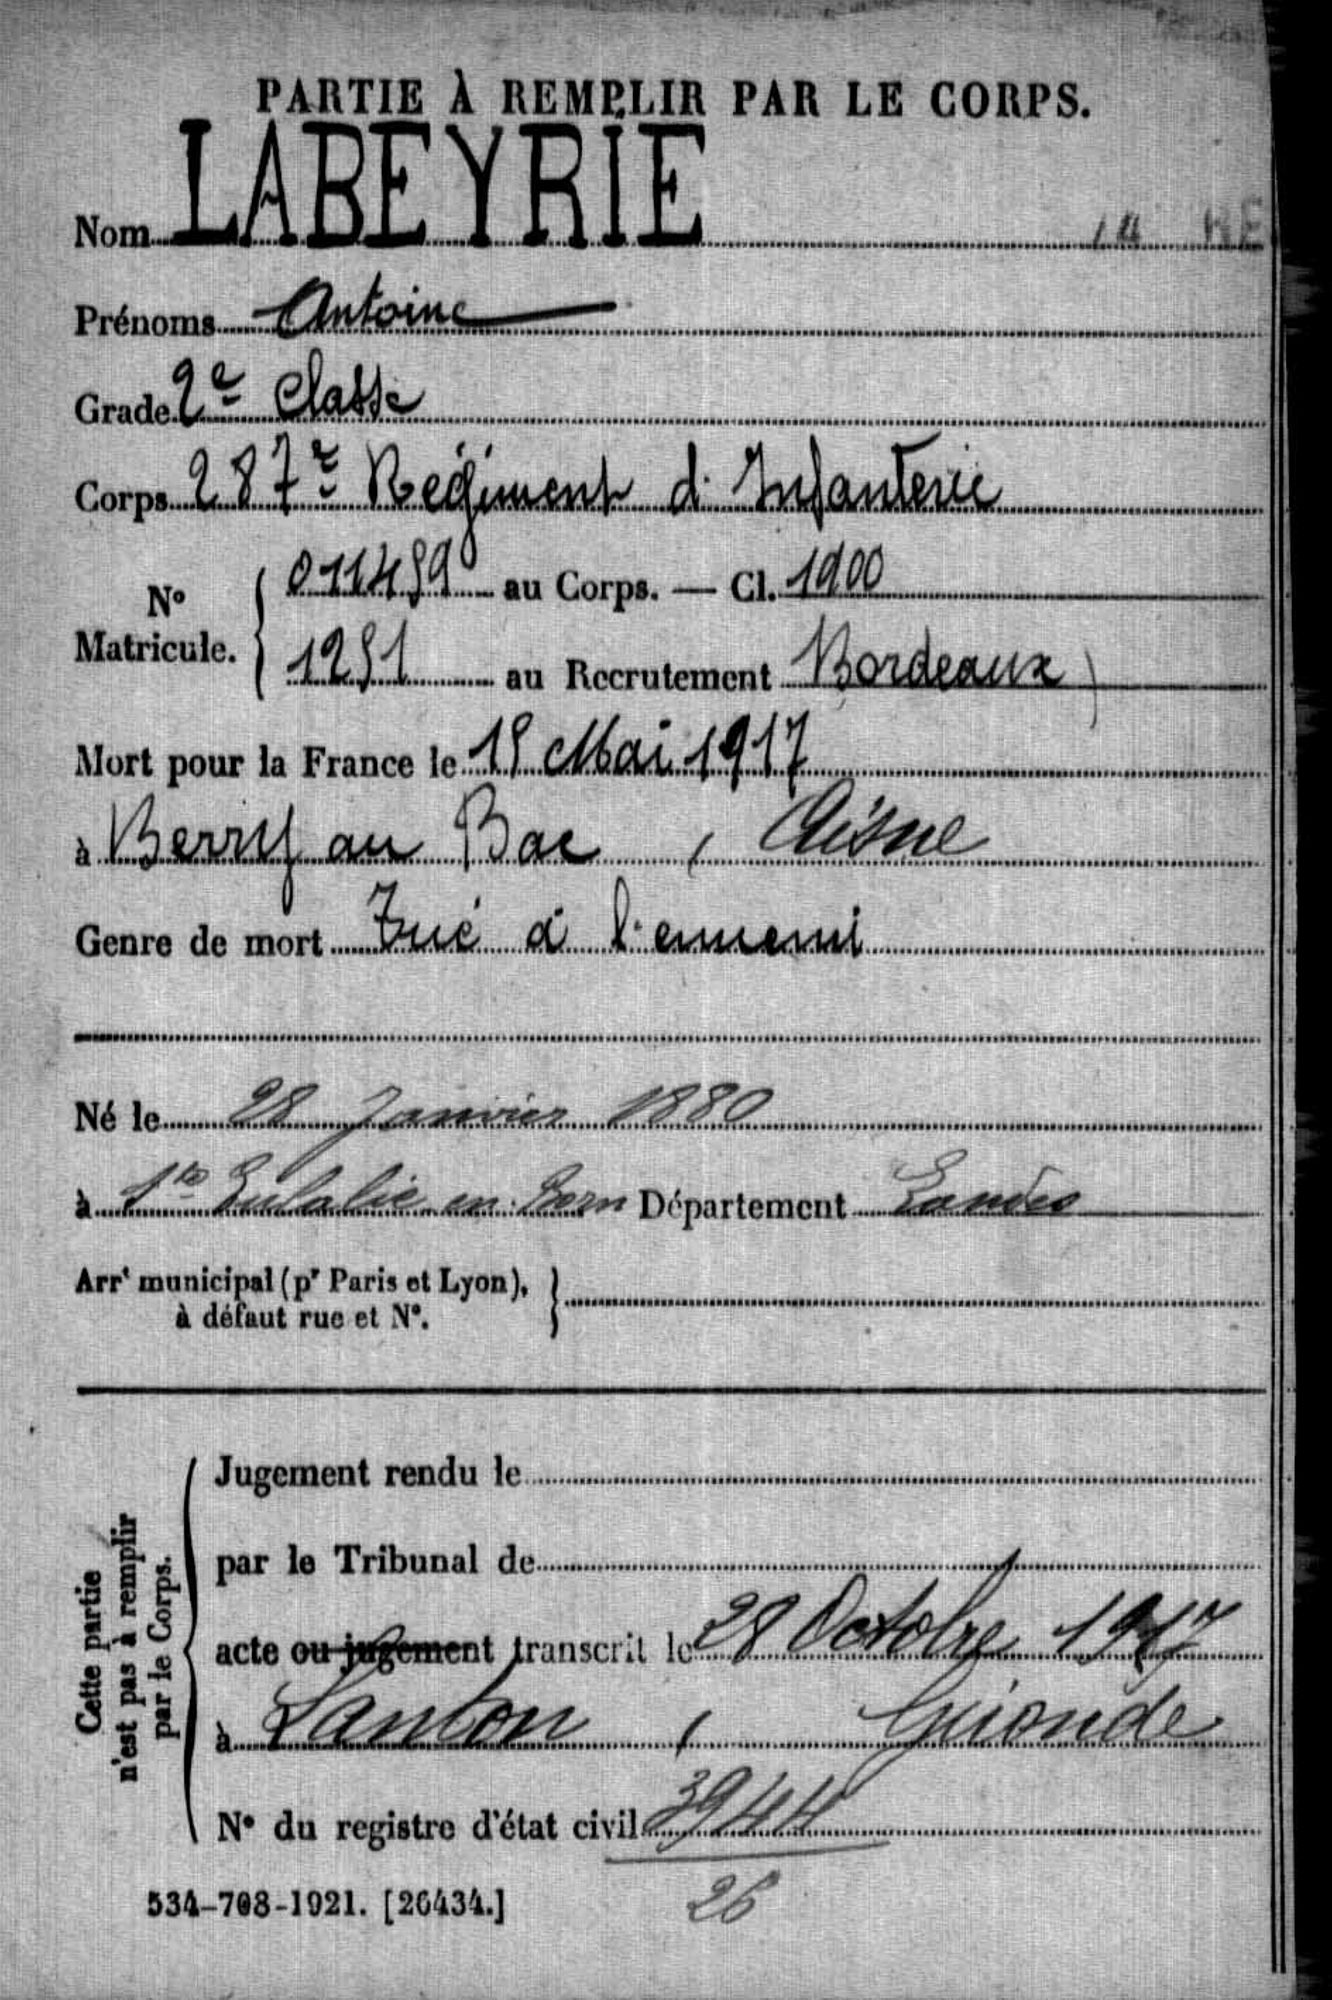 PARTIE À REMPLIR PAR LE CORPS.
Nom LABEYRIE
Prénoms Antoine
Grade 2e Classe
Corps 287e Régiment d'Infanterie
No Matricule. 011459 au Corps. — Cl. 1900
1251 au Recrutement Bordeaux
Mort pour la France le 15 Mai 1917
à Berry au Bac, Aisne
Genre de mort Tué à l'ennemi
Né le 28 Janvier 1880
à Ste Eulalie en Born Département Landes
Arrt municipal (pr Paris et Lyon),
à défaut rue et No.
Cette partie
n'est pas à remplir
par le Corps.
Jugement rendu le
par le Tribunal de
acte ou jugement transcrit le 28 Octobre 1917
à Lanton, Gironde
No du registre d'état civil 3944
26
534-708-1921. [26434.]